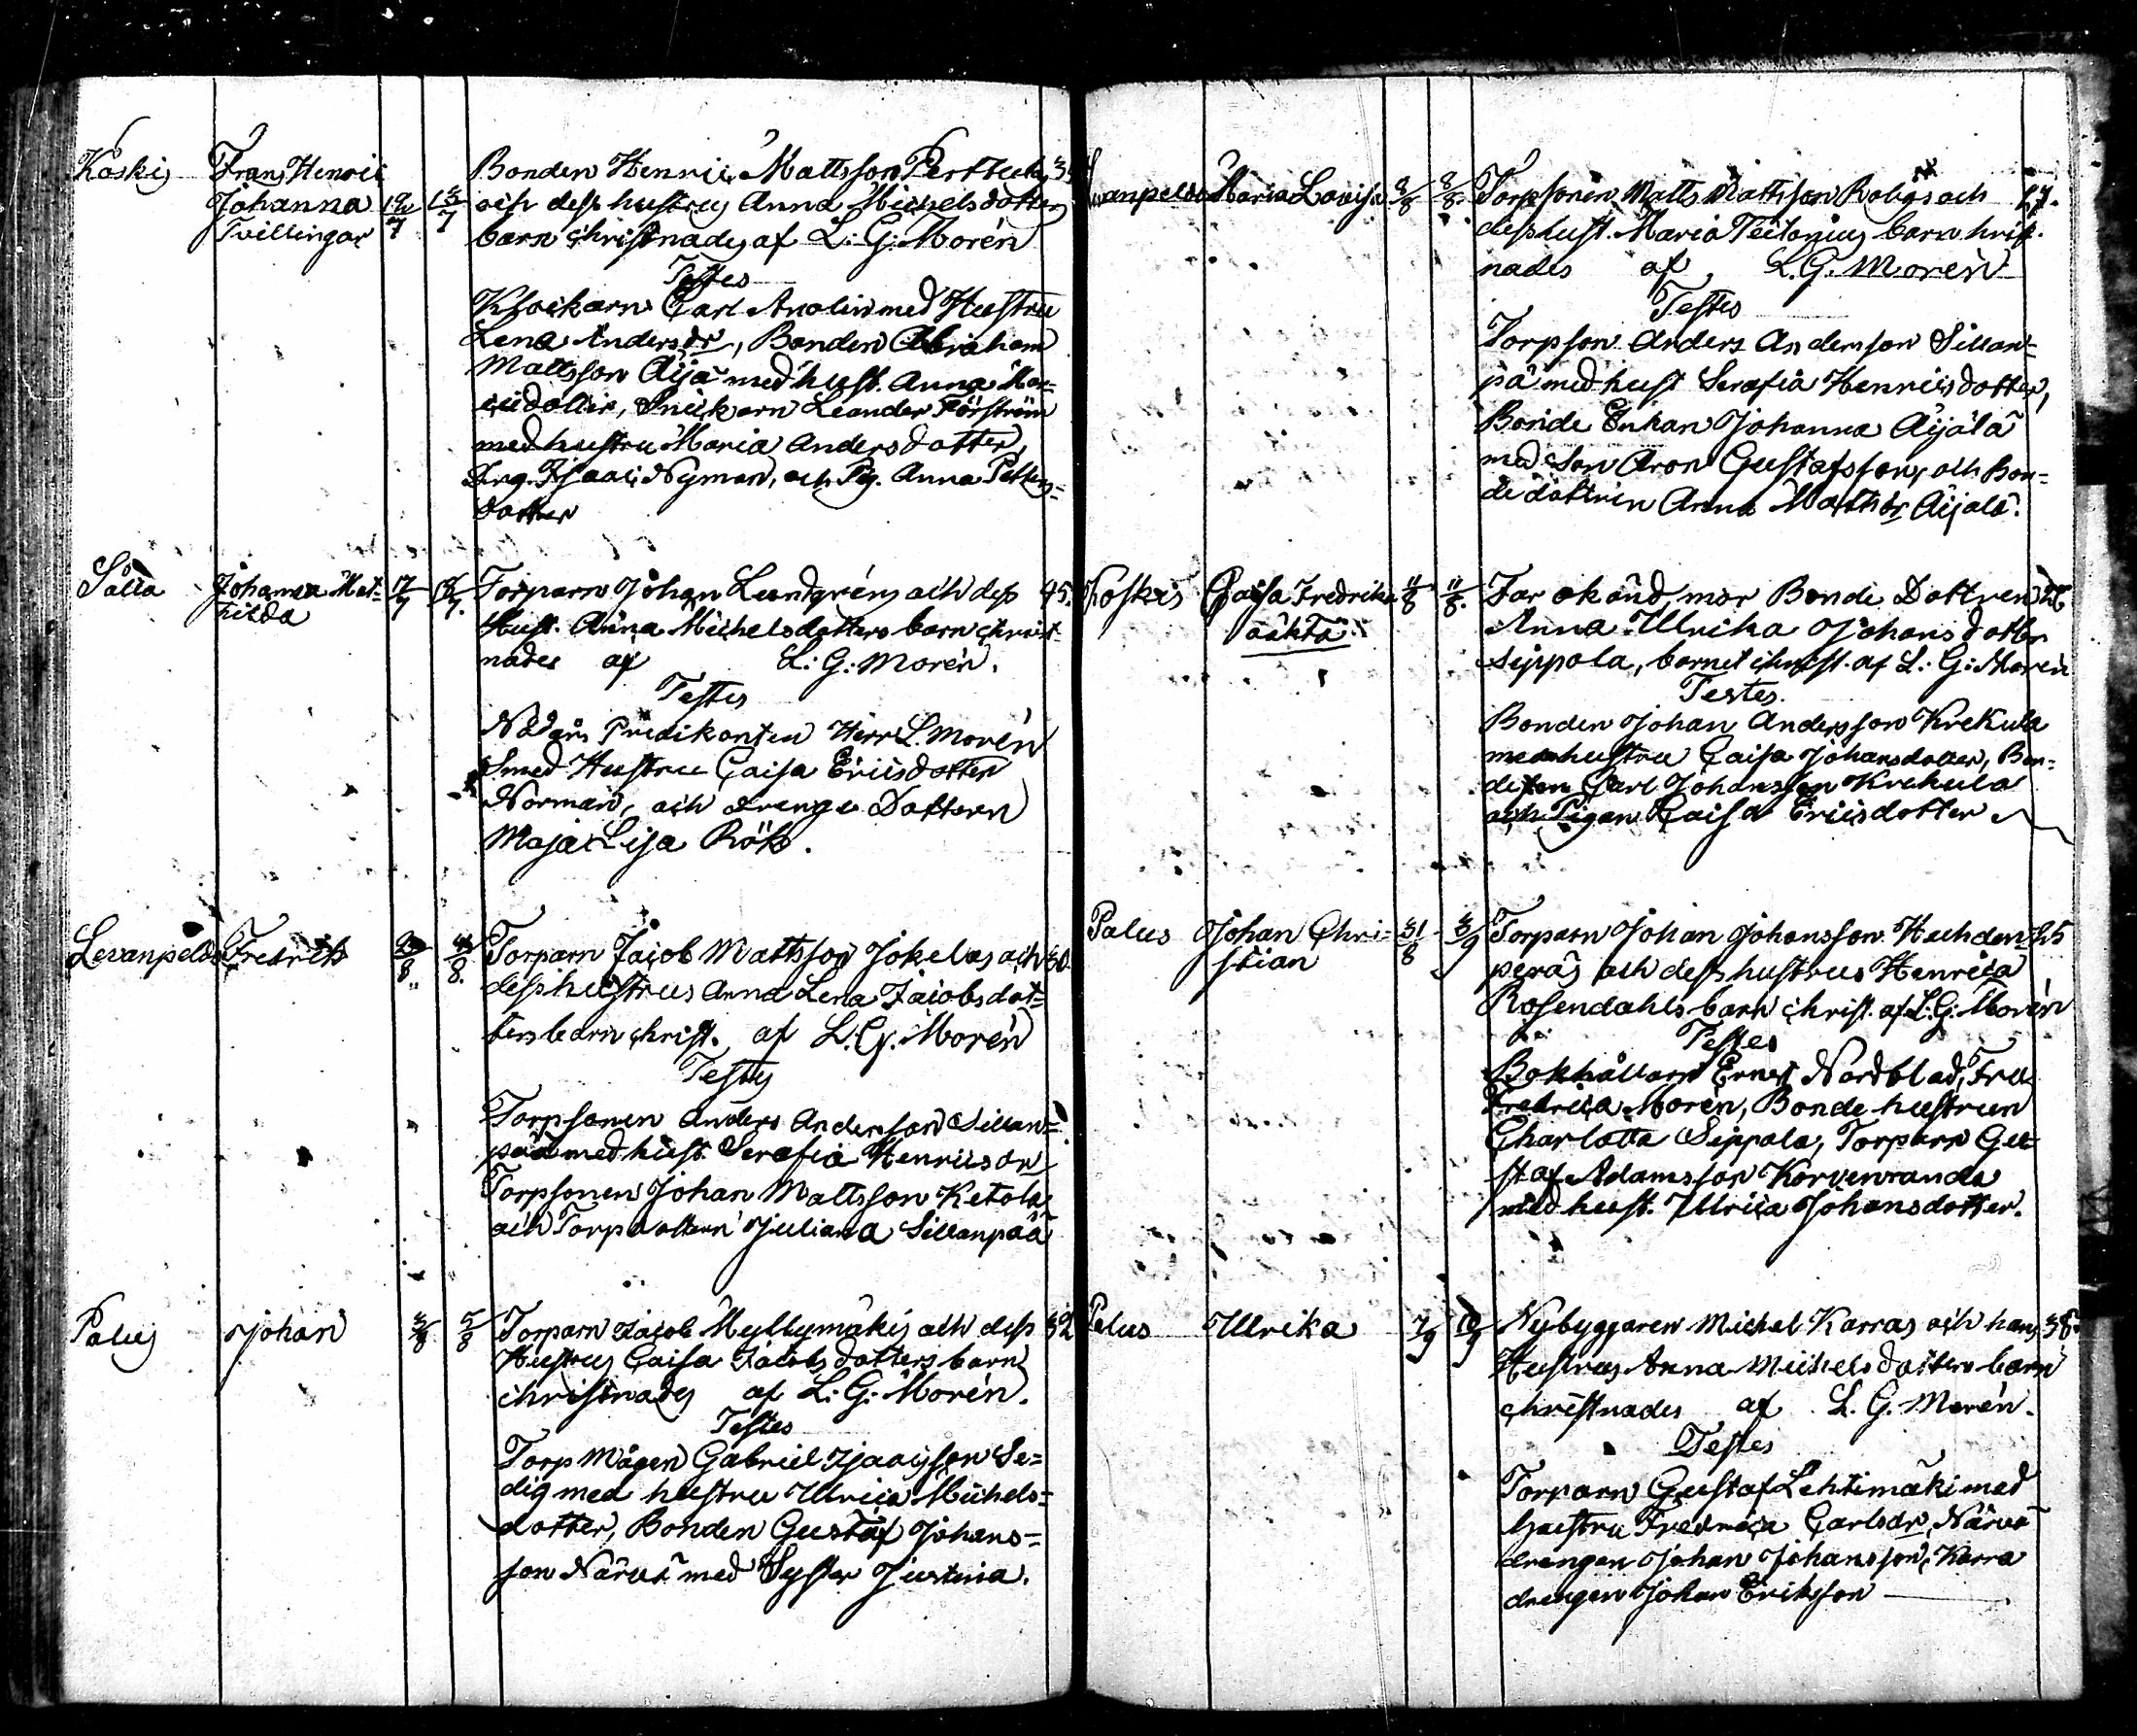 Koskis Frans Henric Bonden Henric Mattsson Perttula
Johanna 12/7 13/7 och dess hustrus Anna Michelsdotters
Tvillingar barn christnades af L: G: Morén
Testes
Klockarn Carl Analin med Hustru
Lena Andersdr, Bonden Abraham
Mattsson Äijä med hust. Anna Mar-
cidotter, Snickarn Leander Förström
med hustru Maria Andersdotter,
Drg. Isaac Nyman, och Pig. Anna Petters-
dotter
Salla Johanna Mat- 17/7 18/7. Torparn Johan Lundgréns och dess 45.
hilda Hust. Anna Michelsdotters barn christ-
nades af L: G: Morén.
Testes
Nådårs Predikanten Herr L. Morén
Smed Hustru Caisa Ericsdotter
Norman, och drenge Dottern
Maja Lisa Rök.
Levanpelds Fredrik 4/8. Torparn Jacob Mattsson Jokelas och 30.
dess hustrus Anna Lena Jacobsdot-
ters barn christ. af L. G. Morén
Testes
Torpsonen Anders Andersson Sillan-
pää med hust. Serafia Henricsdr
Torpsonen Johan Mattsson Ketola
och Torpdottern Juliana Sillanpää
Palus Johan 3/8 5/8 Torparn Jacob Myllymäkis och dess 32
Hustrus Caisa Jacobsdotters barn
christnades af L: G: Morén.
Testes
Torp Mågen Gabriel Isacsson Se-
dig med hustru Ulrica Michels-
dotter, Bonden Gustaf Johans-
son Närvä med Syster Justina.
Levanpelds Maria Lovisa 8/8 8/8. Torpsonen Matts Mattsson Robigs och 27.
dess hust. Maria Teitonius barn chris-
nades af L. G. Morén
Testes
Torpson Anders Andersson Sillan-
pä med hust Serafia Henricsdotter,
Bonde Enkan Johanna Äijälä
med Son Aron Gustafsson, och Bon-
de dottren Anna Mathsdr Äijälä.
Koskis Caisa Fredrika 11/8 11/8. Far okänd mor Bonde Dottren
oäkta Anna Ulrika Johansdotter
Seppola, barnet christ. af L: G: Morén
Testes.
Bonden Johan Andersson Krekula
med hustru Caisa Johansdotter, Bon-
deson Carl Johansson Krekula
och Pigan Caisa Ericsdotter
Palus Johan Chri- 31/8 3/9 Torparn Johan Johansson Huhden- 25
stian peräs och dess hustrus Henrica
Rosendahls barn christ. af L: G: Morén
Testes
Bokhållarn Ernst Nordblad, Fru
Fredrica Morén, Bonde hustrun
Charlotta Seppola, Torparn Gu-
staf Adamsson Korvenranda
med hust. Ulrica Johansdotter.
Palus Ulrika 7/9 10/9 Nybyggaren Michel Karras och hans 38.
Hustrus Anna Michelsdotters barn
christnades af L. G. Morén.
Testes
Torparn Gustaf Lehtimäki med
hustru Fredrica Carlsdr, Närvä
drengen Johan Johansson, Karra
drengen Johan Eriksson